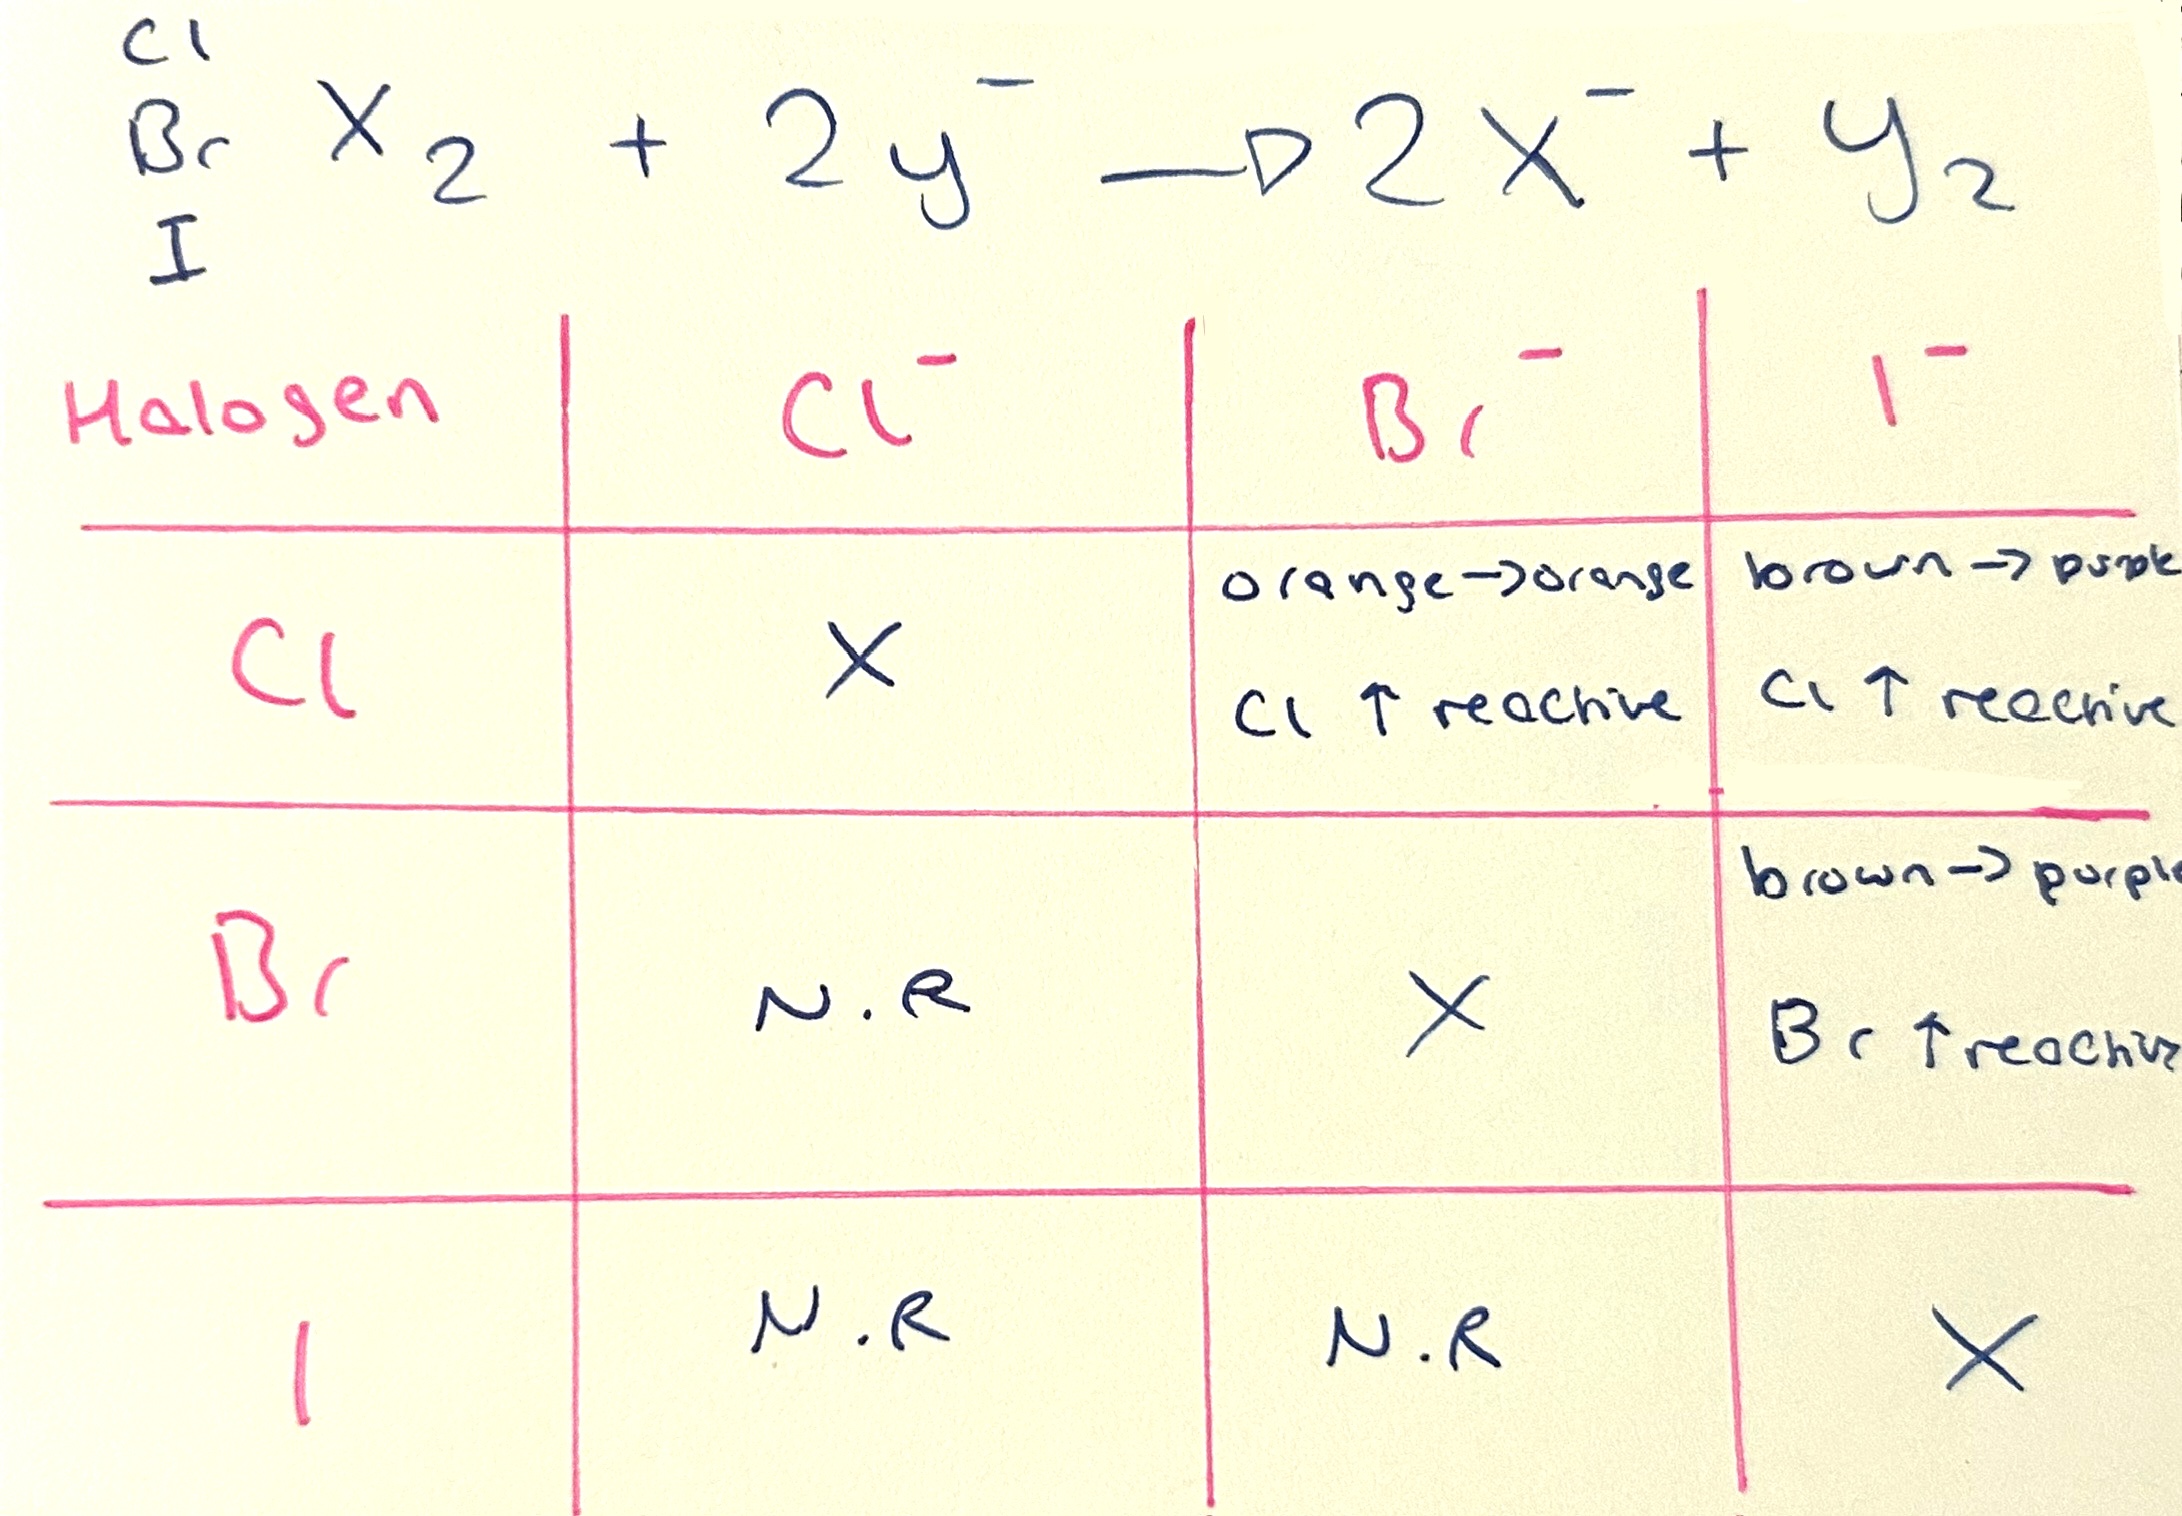 Cl
Br X₂ + 2y⁻ → 2X⁻ + y₂
I
Halogen Cl⁻ Br⁻ I⁻
orange → orange brown → purple
Cl X Cl ↑ reactive Cl ↑ reactive
brown → purple
Br N.R X Br ↑ reactive
I N.R N.R X